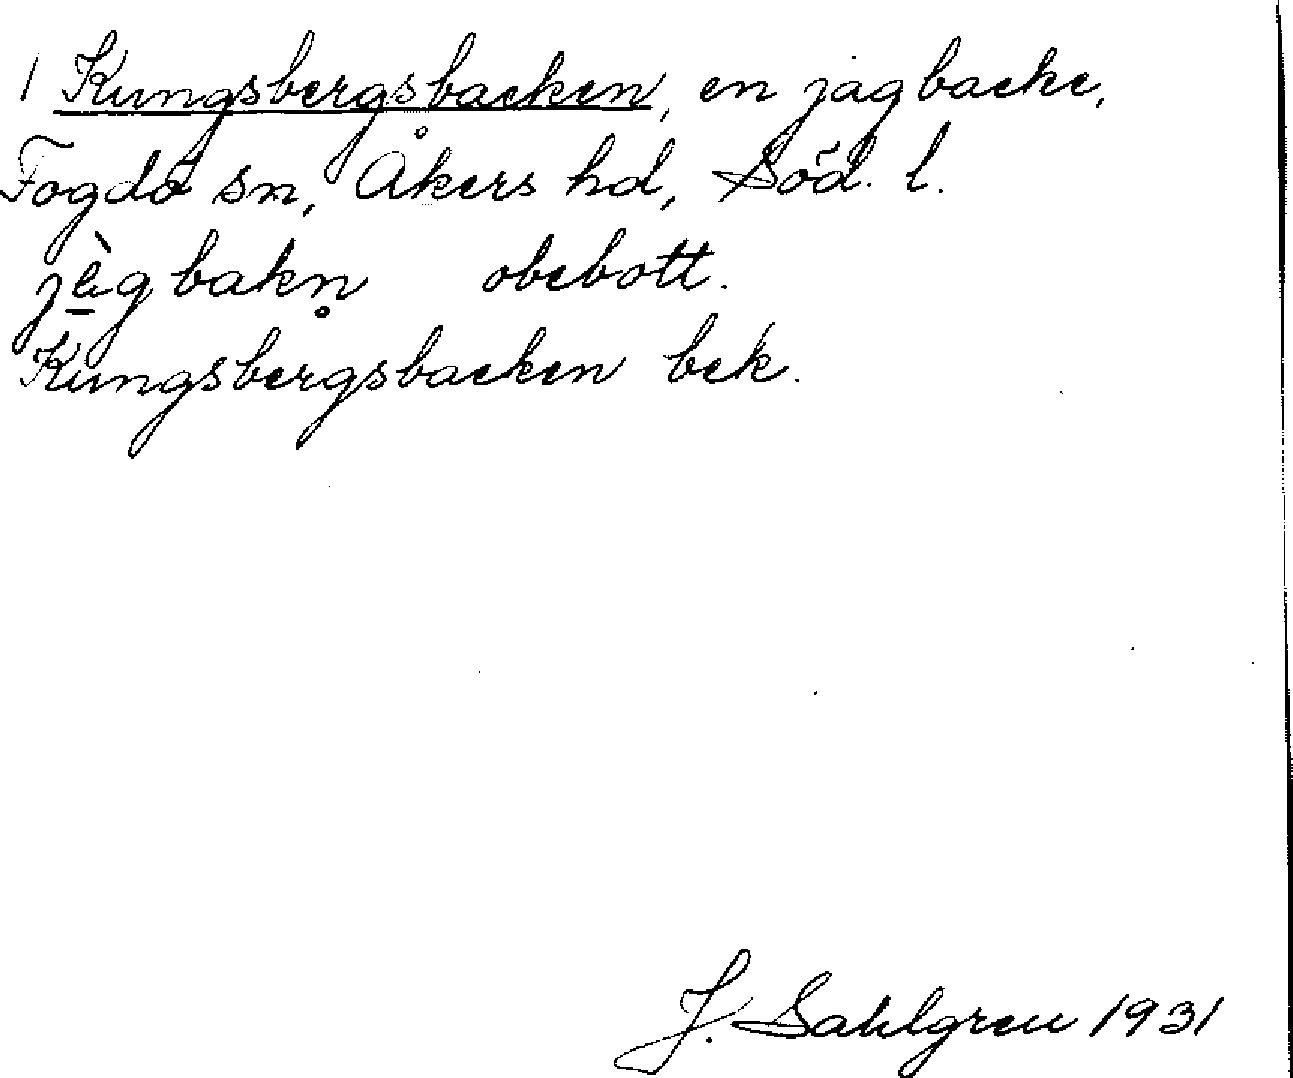 1 Kungsbergsbacken, en jagbacke,
Fogdö sn, Åkers hd, Söd. l.
jàgbakn̥ obebott.
Kungsbergsbacken bek.
J. Sahlgren 1931